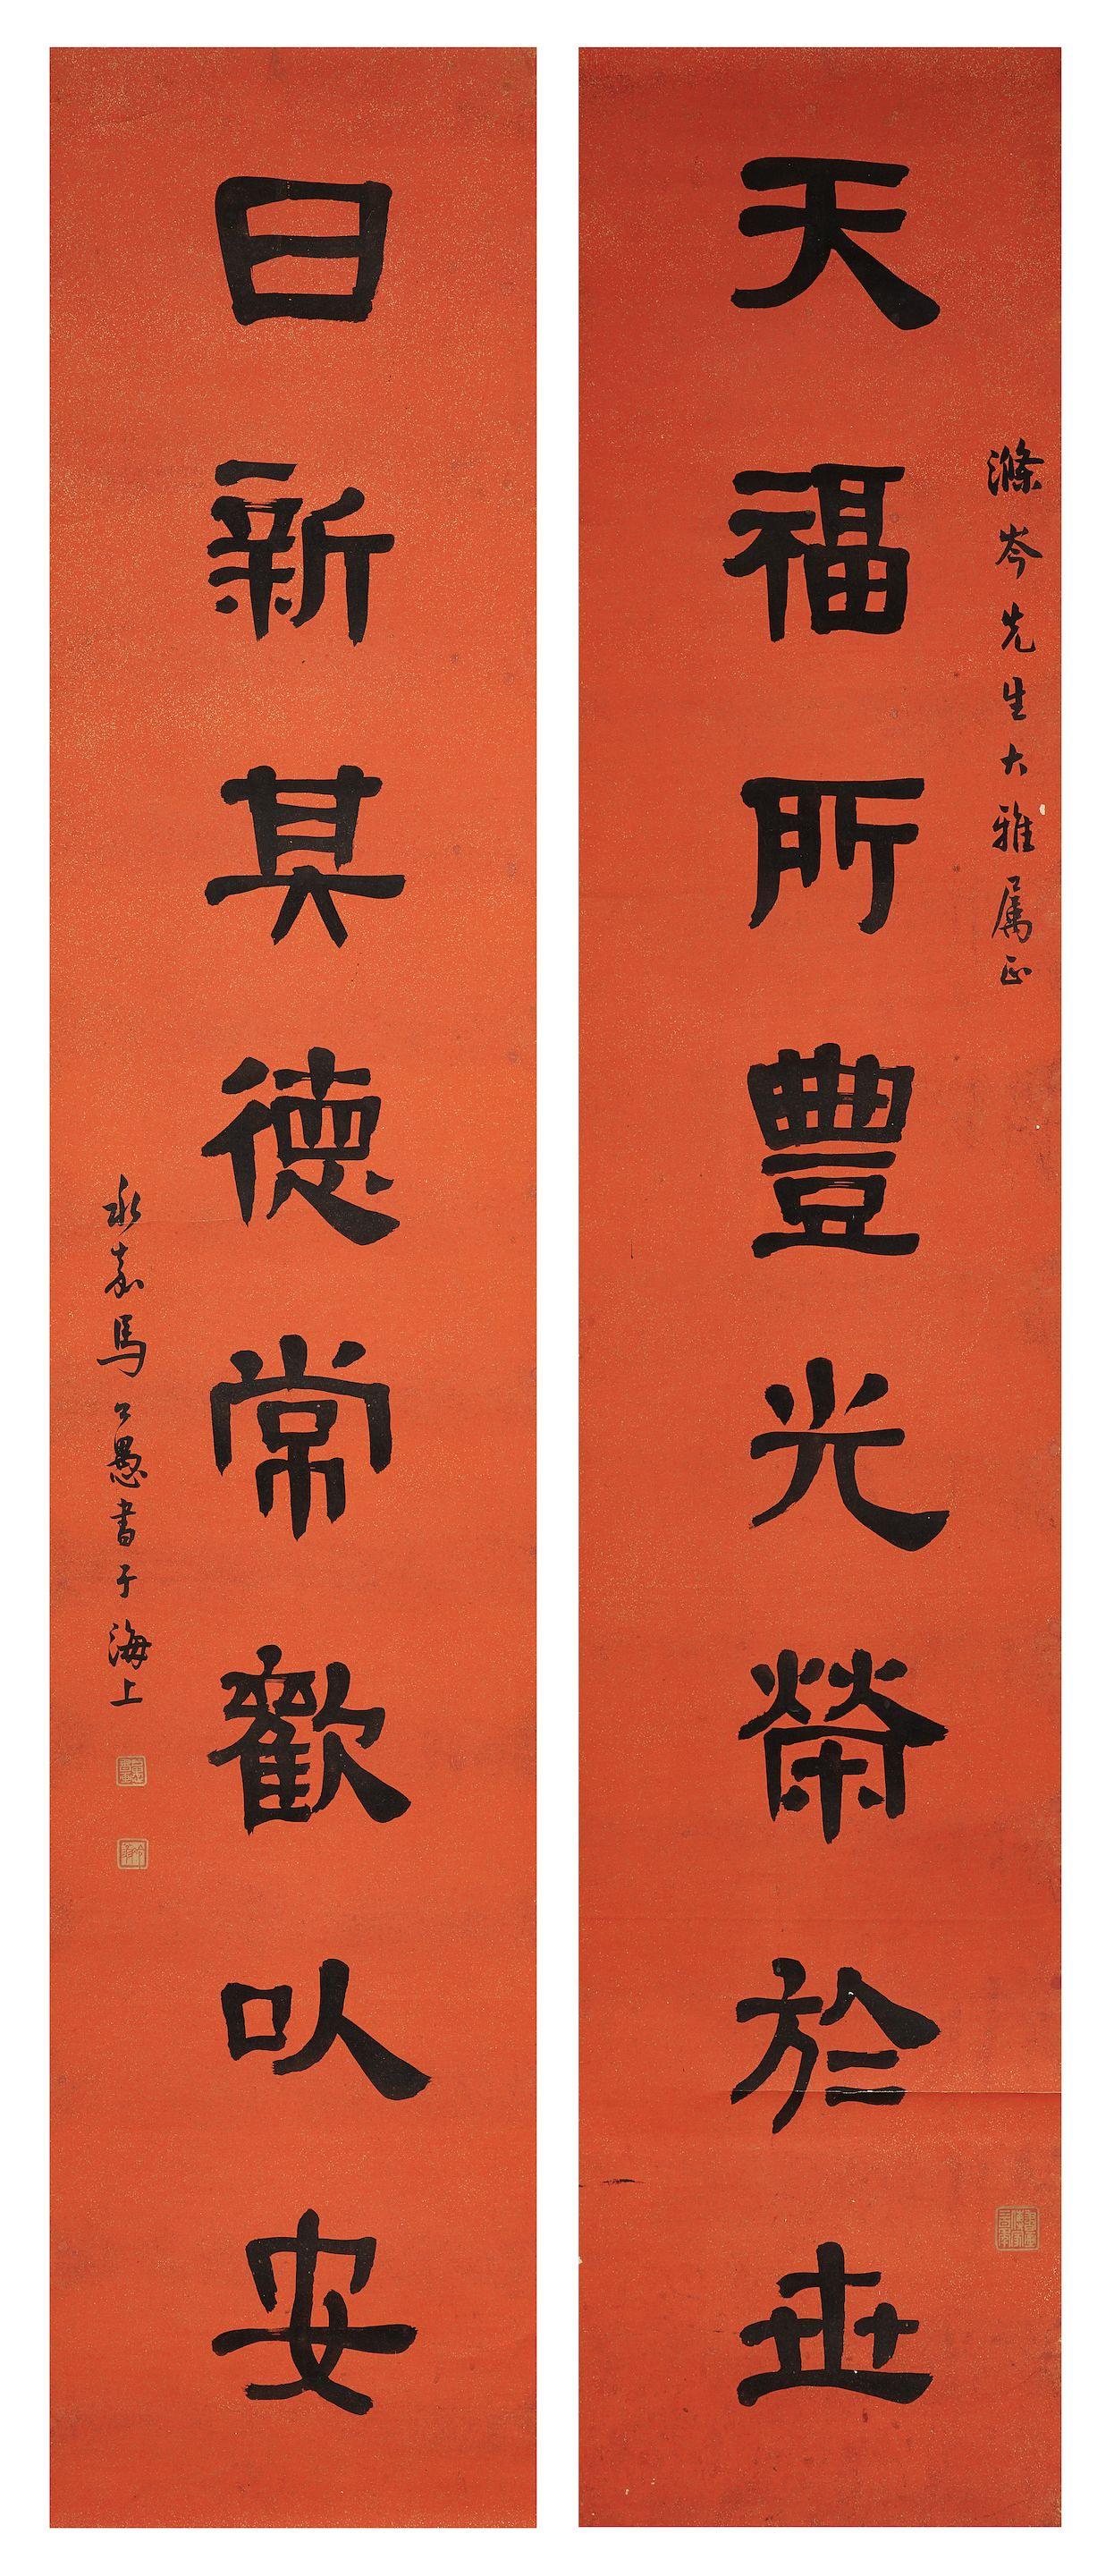 天福所豐光榮於世
滌岑先生大雅属正
日新其德常歡以安
永嘉馬公愚書于海上